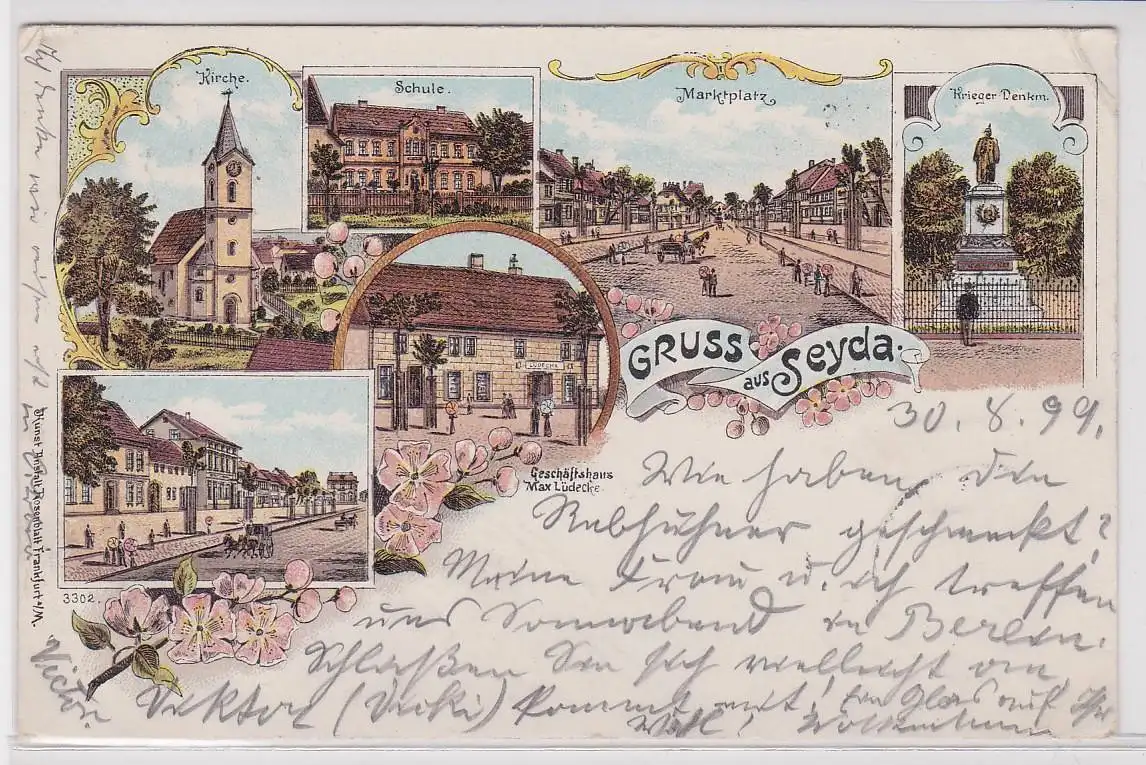 Kirche.
Schule.
Marktplatz
Krieger Denkm.
LÜDECKE
GRUSS
aus Seyda.
Geschäftshaus
Max Lüdecke
3302
Kunst Anstalt Rosenblatt Frankfurt a/M.
30. 8. 99.
Wie haben die
Rebhühner geschmeckt?
Meine Frau u. ich treffen
uns Sonnabend in Berlin.
Schließen Sie sich vielleicht an
Viktor (Vicki) kommt mit! ein Glas auf Ihr
Wohl!
Victor.